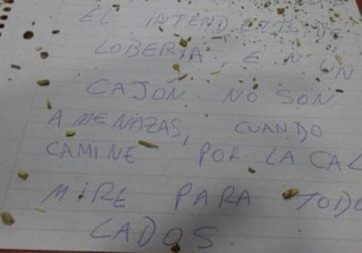 EL INTENDENTE DE
LOBERÍA, EN UN
CAJÓN. NO SON
AMENAZAS, CUANDO
CAMINE POR LA CAL
MIRE PARA TODO
LADOS